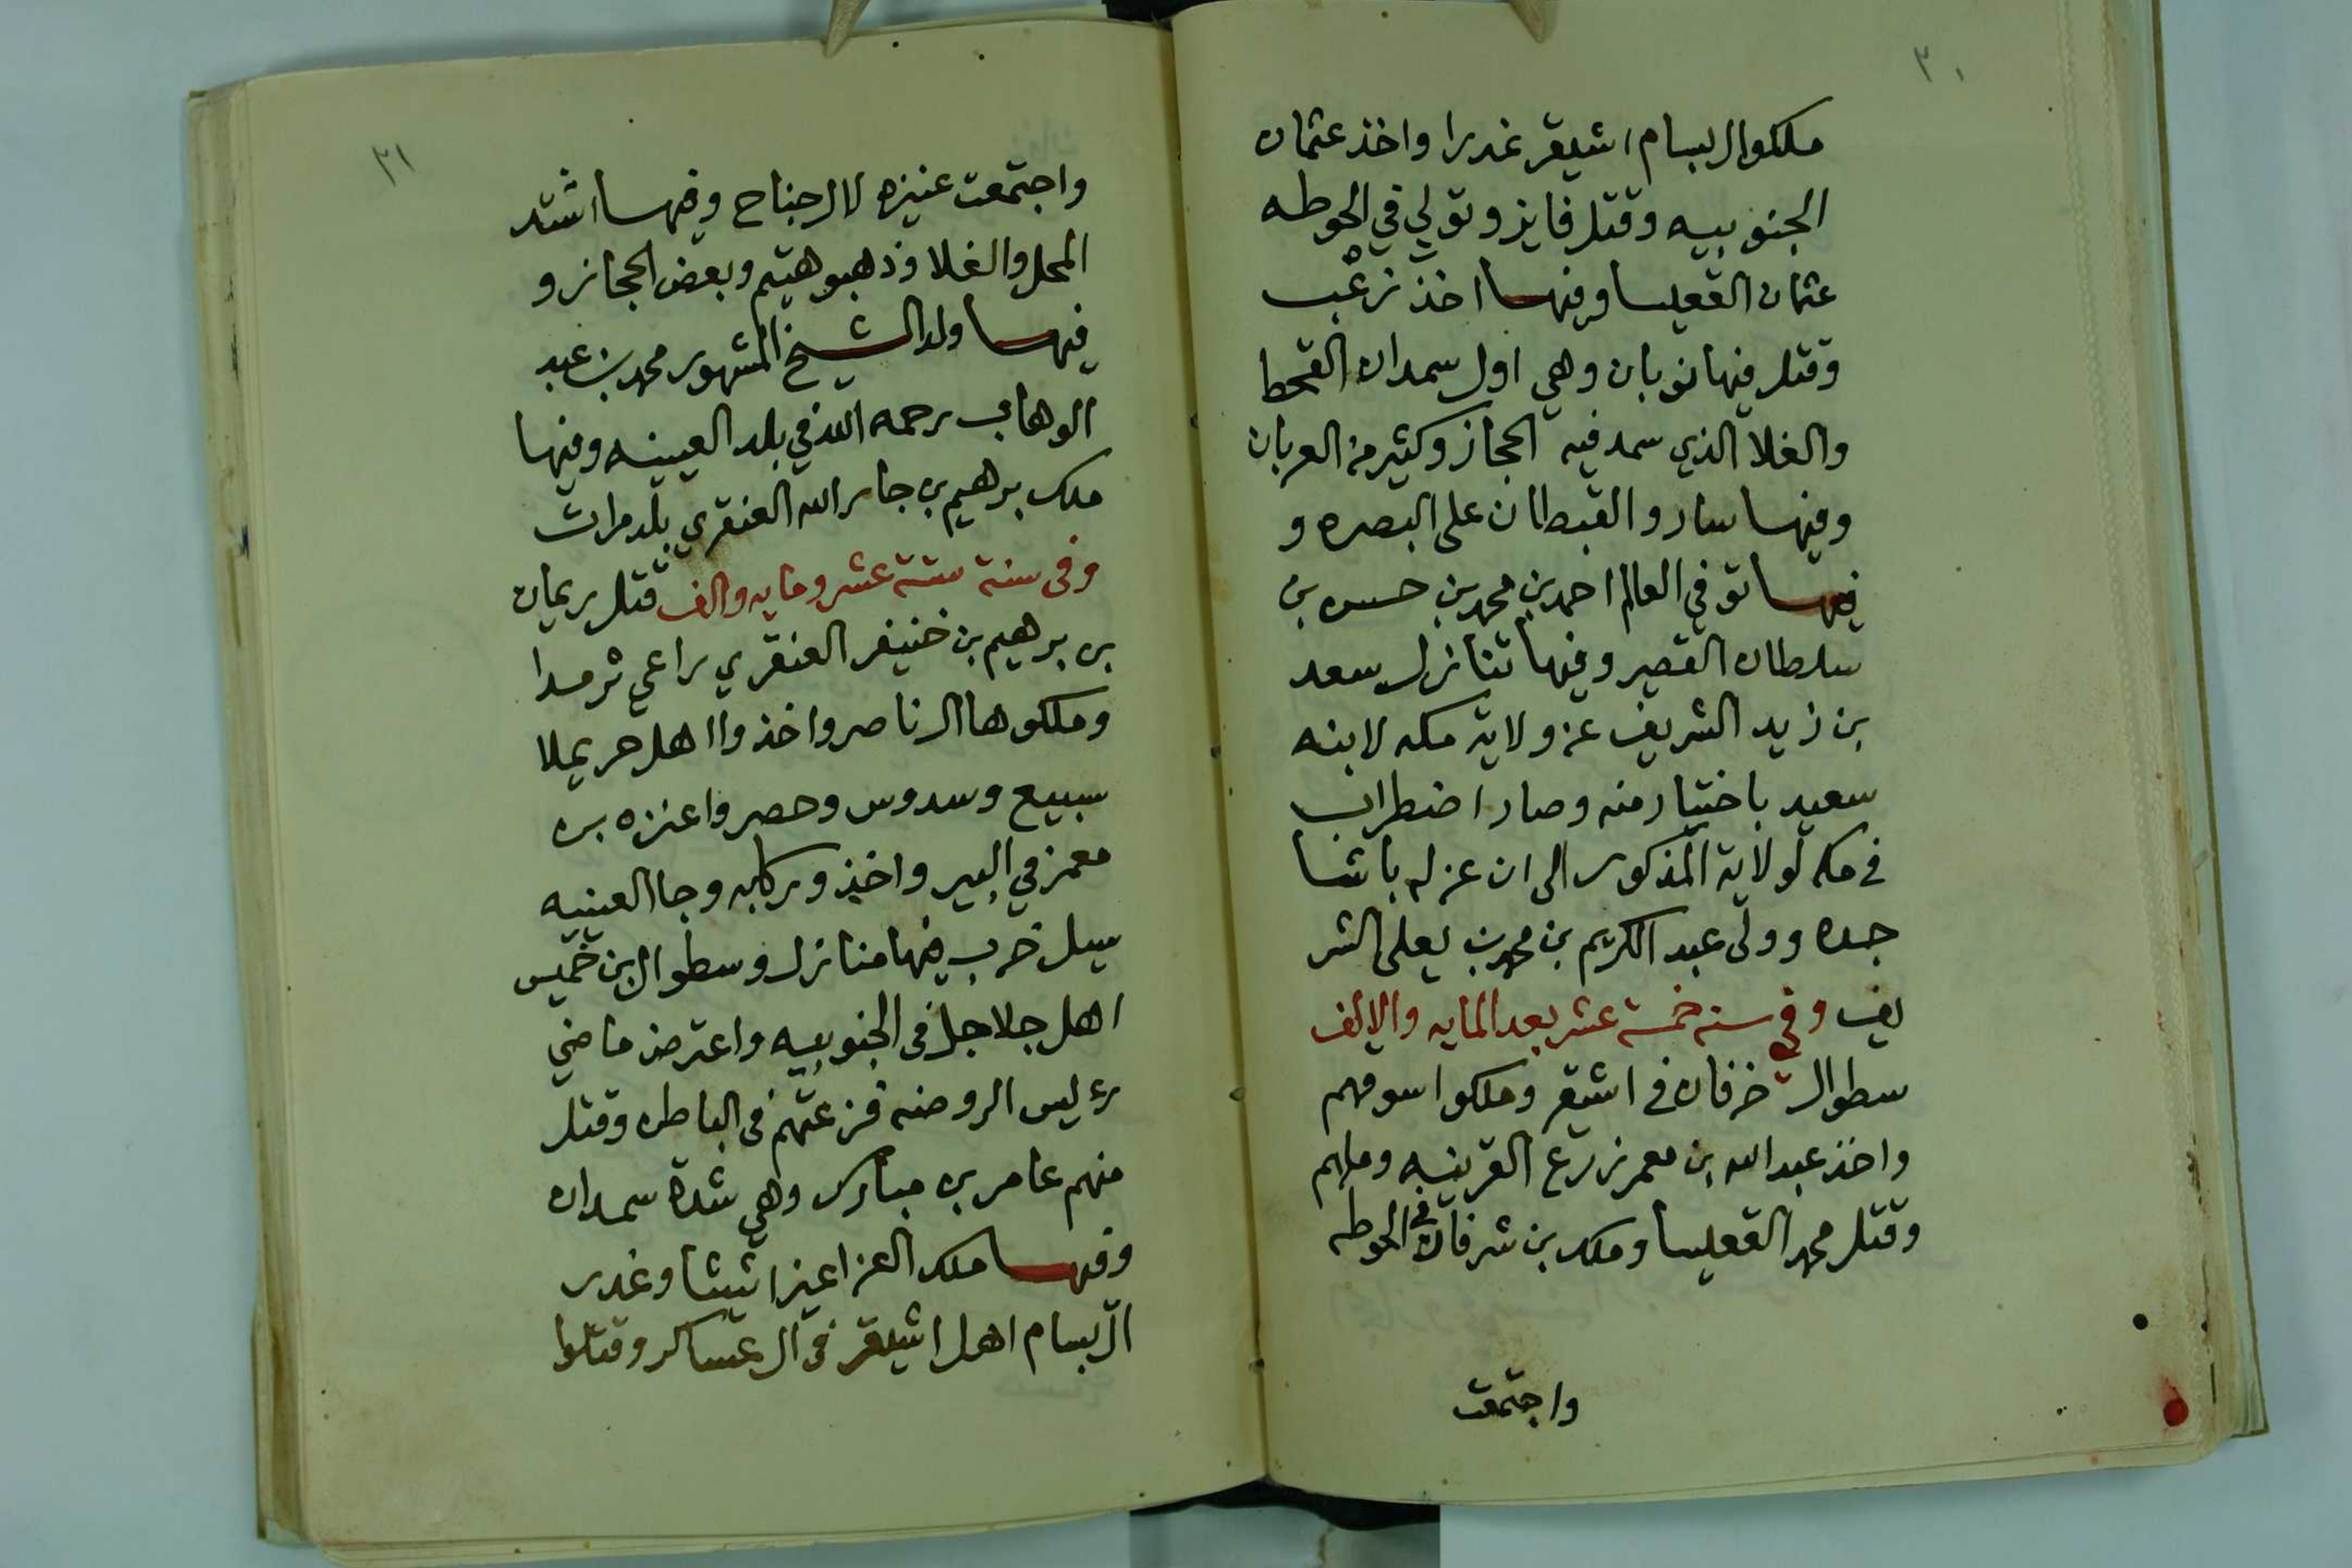 ٣٠
ملكوا ال بسام اشيقر غدرا واخذ عثمان
الجنوبيه وقتل فايز وتولي في الحوطه
عثمان القعيسا وفيها اخذ زعب
وقتل فيها نوبان وهي اول سمدان القحط
والغلا الذي سمد فيه الحجاز وكثير من العربان
وفيها سارو القبطان على البصره و
فيها توفي العالم احمد بن محمد بن حسن بن
سلطان القصير وفيها تنازل سعد
بن زيد الشريف عن ولاية مكه لابنه
سعيد باختيار منه وصار اضطراب
في مكه لولاية المذكور الى ان عزله باشا
جده وولى عبد الكريم بن محمد بن يعلى الشر
يف وفي سنه خمسة عشر بعد المايه والالف
سطوا ال خرفان في اشيقر وملكوا سوقهم
واخذ عبد الله بن معمر زرع القرينه وملهم
وقتل محمد القعيسا وملك بن شرفان في الحوطه
واجتمعت
٣١
واجتمعت عنيزه لال جناح وفيها اشتد
المحل والغلا وذهبو هتيم وبعض الحجاز و
فيها ولد الشيخ المشهور محمد بن عبد
الوهاب رحمه الله في بلد العيينه وفيها
ملك برهيم بن جار الله العنقري بلد مرات
وفى سنة ستة عشر ومايه والف قتل ريمان
بن برهيم بن خنيفر العنقري راعي ثرمدا
وملكوها ال ناصر واخذوا اهل حريملا
سبيع وسدوس وحصروا عنزه بن
معمر في البير واخذو ركابه وجا العينيه
سيل خرب فيها منازل وسطوا ال بن خميس
اهل جلاجل في الجنوبيه واعترض ماضي
رءيس الروضه فزعتهم في الباطن وقتل
منهم عامر بن مبارك وهي شدة سمدان
وفيها ملك العزاعيز اثيثا وغدر
ال بسام اهل اشيقر في ال عساكر وقتلوا